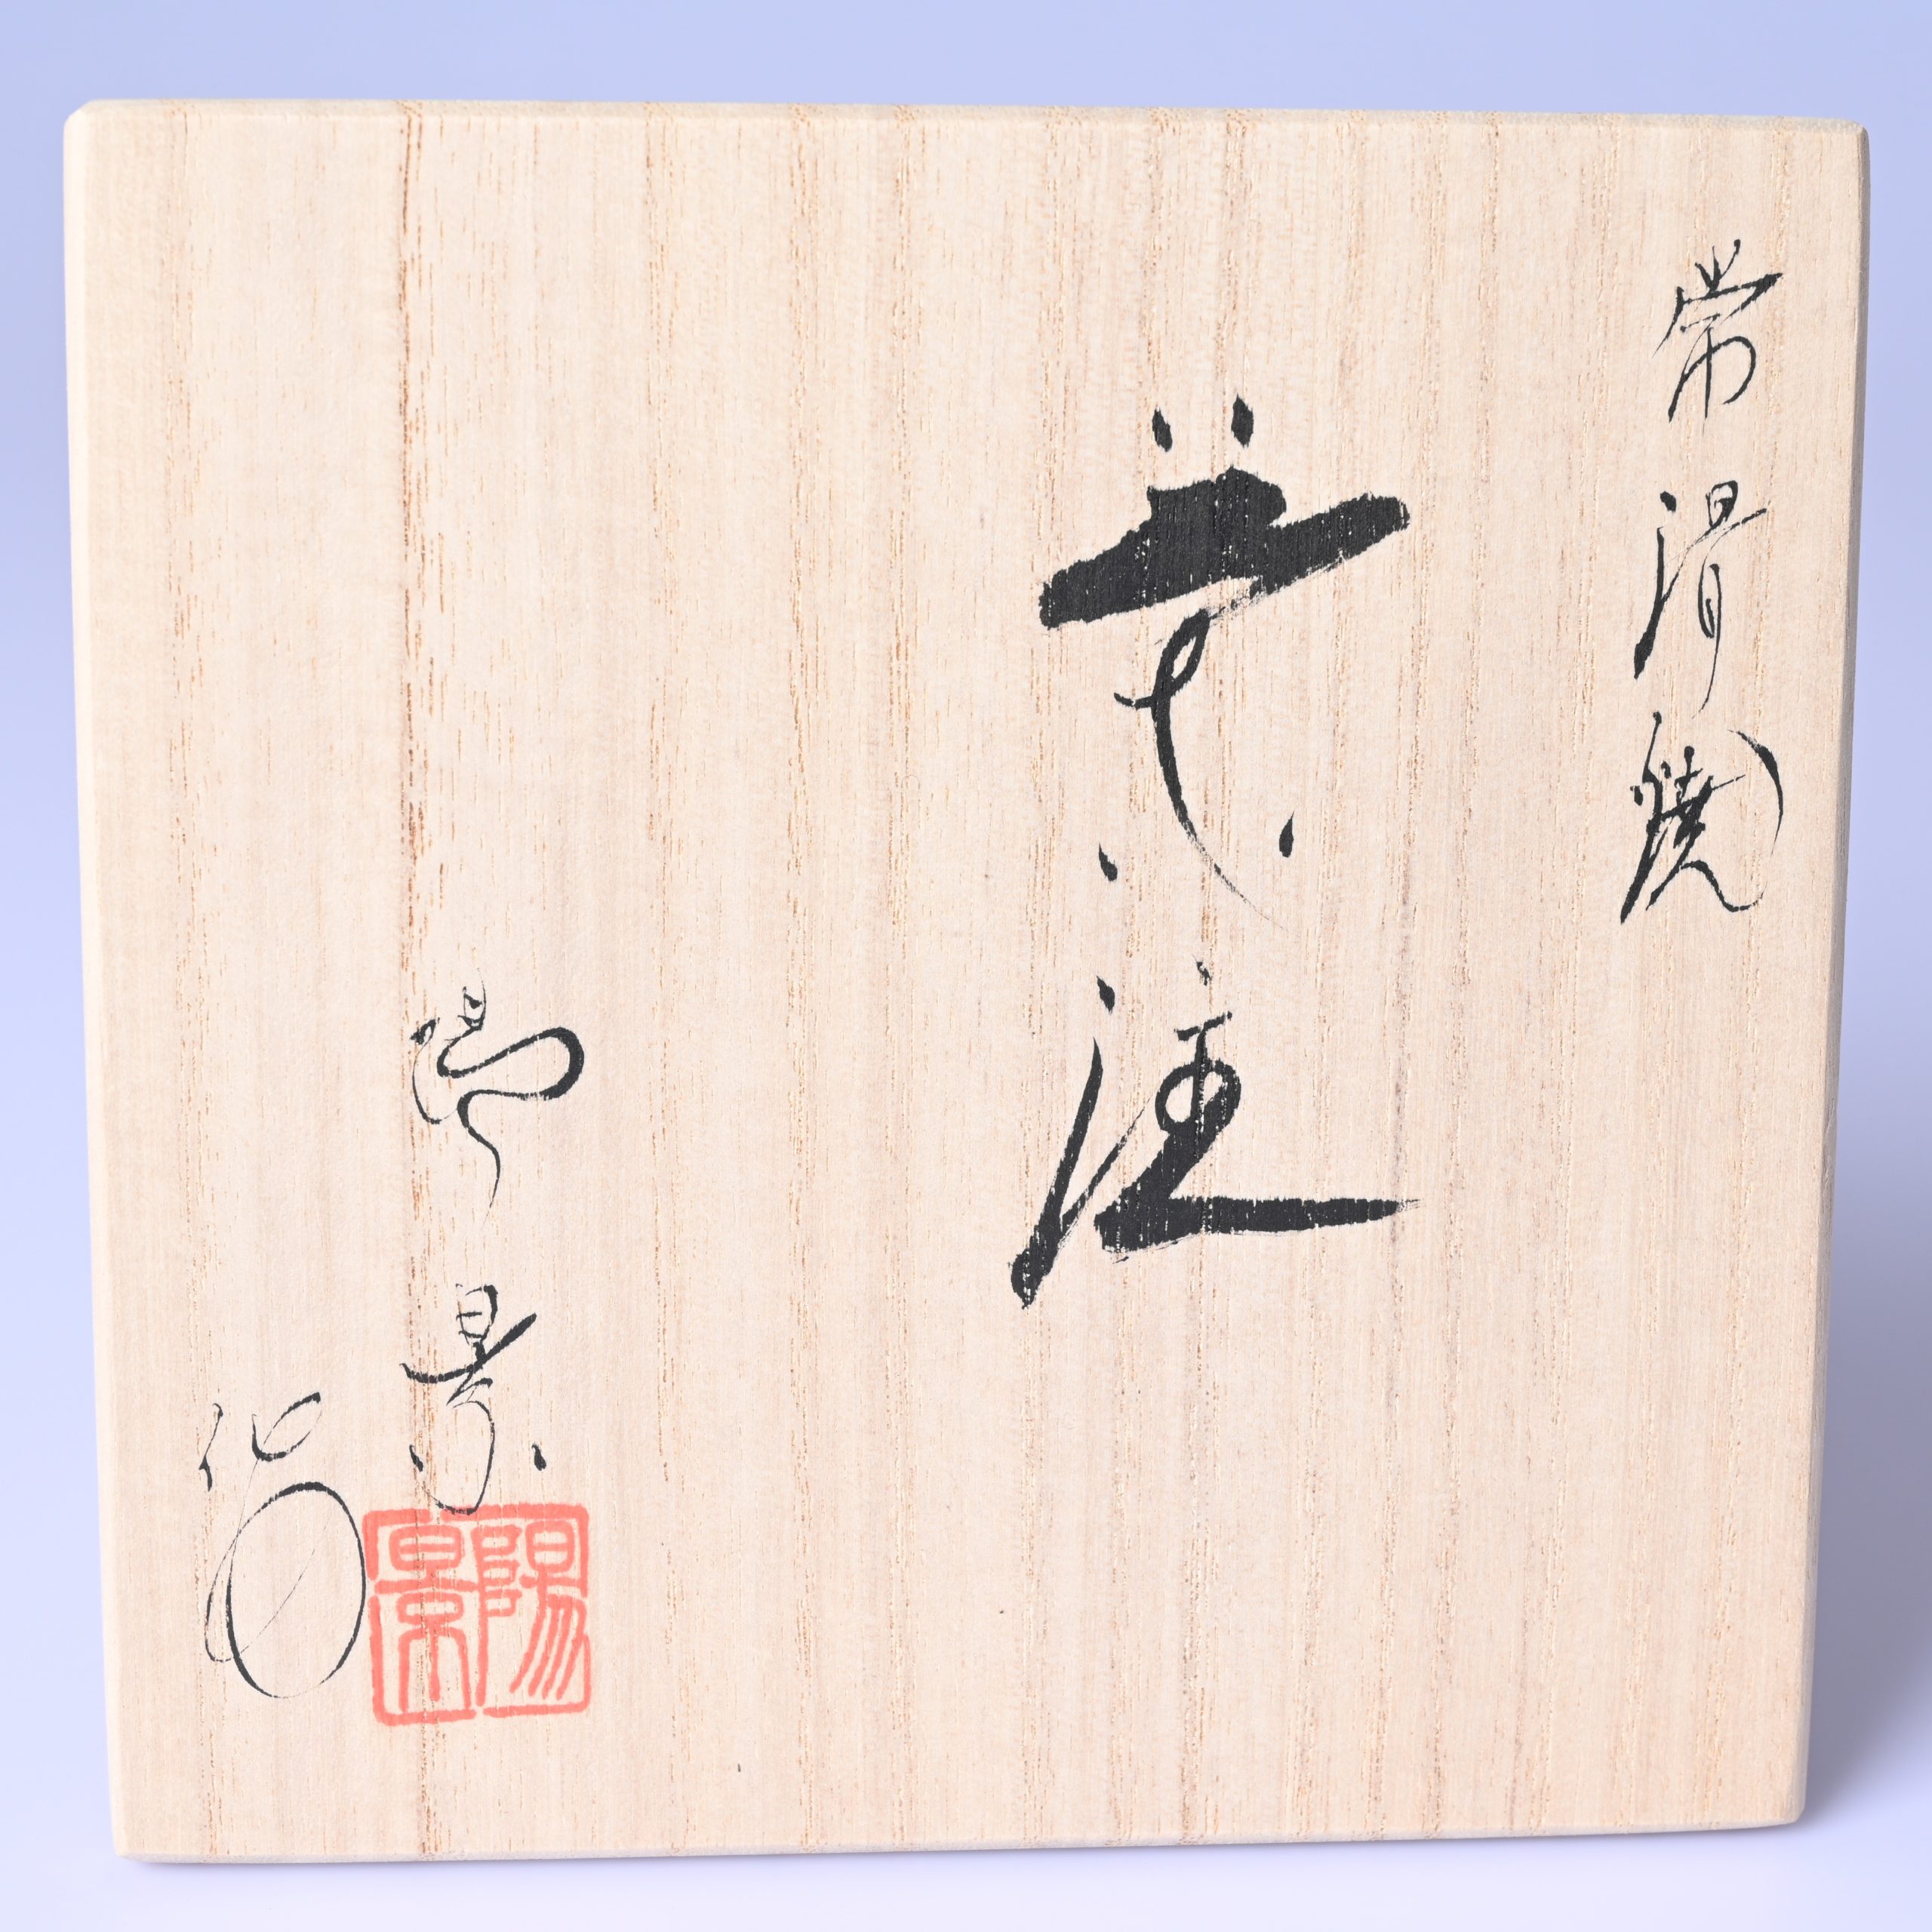 常滑焼
茶注
陽景
作
陽景